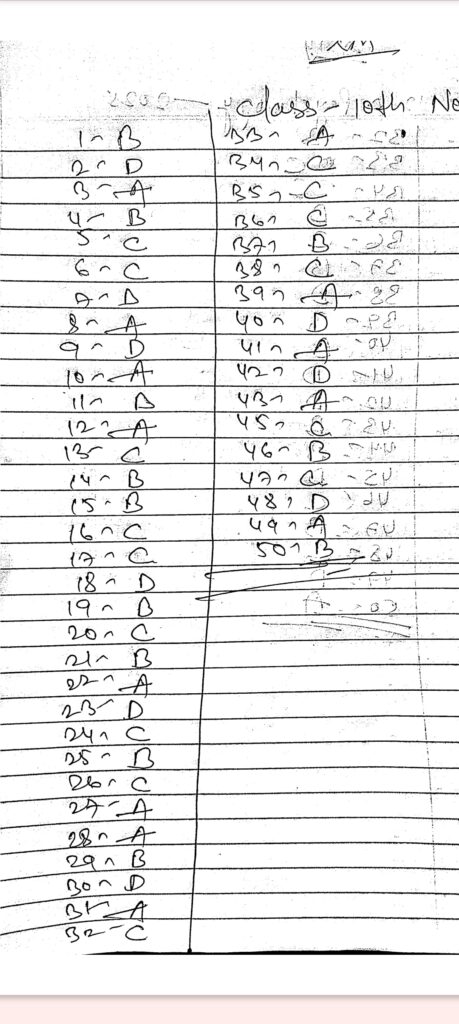 Class - 10th No
1- B
2- D
3- A
4- B
5- C
6- C
7- D
8- A
9- D
10- A
11- B
12- A
13- C
14- B
15- B
16- C
17- C
18- D
19- B
20- C
21- B
22- A
23- D
24- C
25- B
26- C
27- A
28- A
29- B
30- D
31- A
32- C
33- A
34- C
35- C
36- C
37- B
38- C
39- A
40- D
41- A
42- D
43- A
45- C
46- B
47- C
48- D
49- A
50- B